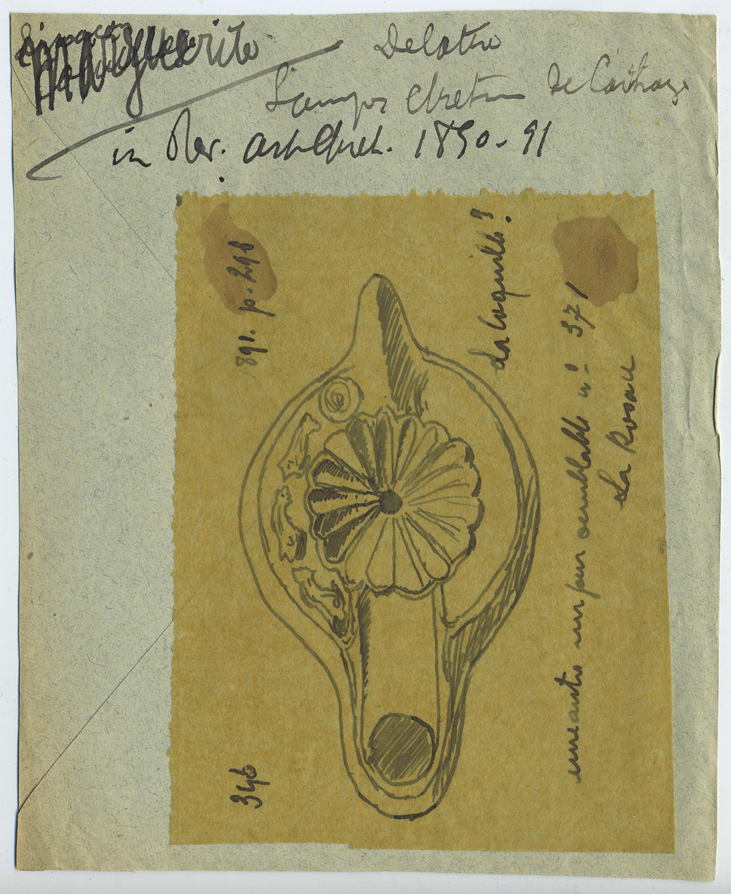 Marguerite
Delattre
Lampes chret de Carthage
in Rev. art chret. 1890-91
891. p. 298
La Coquille?
une autre un peu semblable n° 371
La Rosace
346